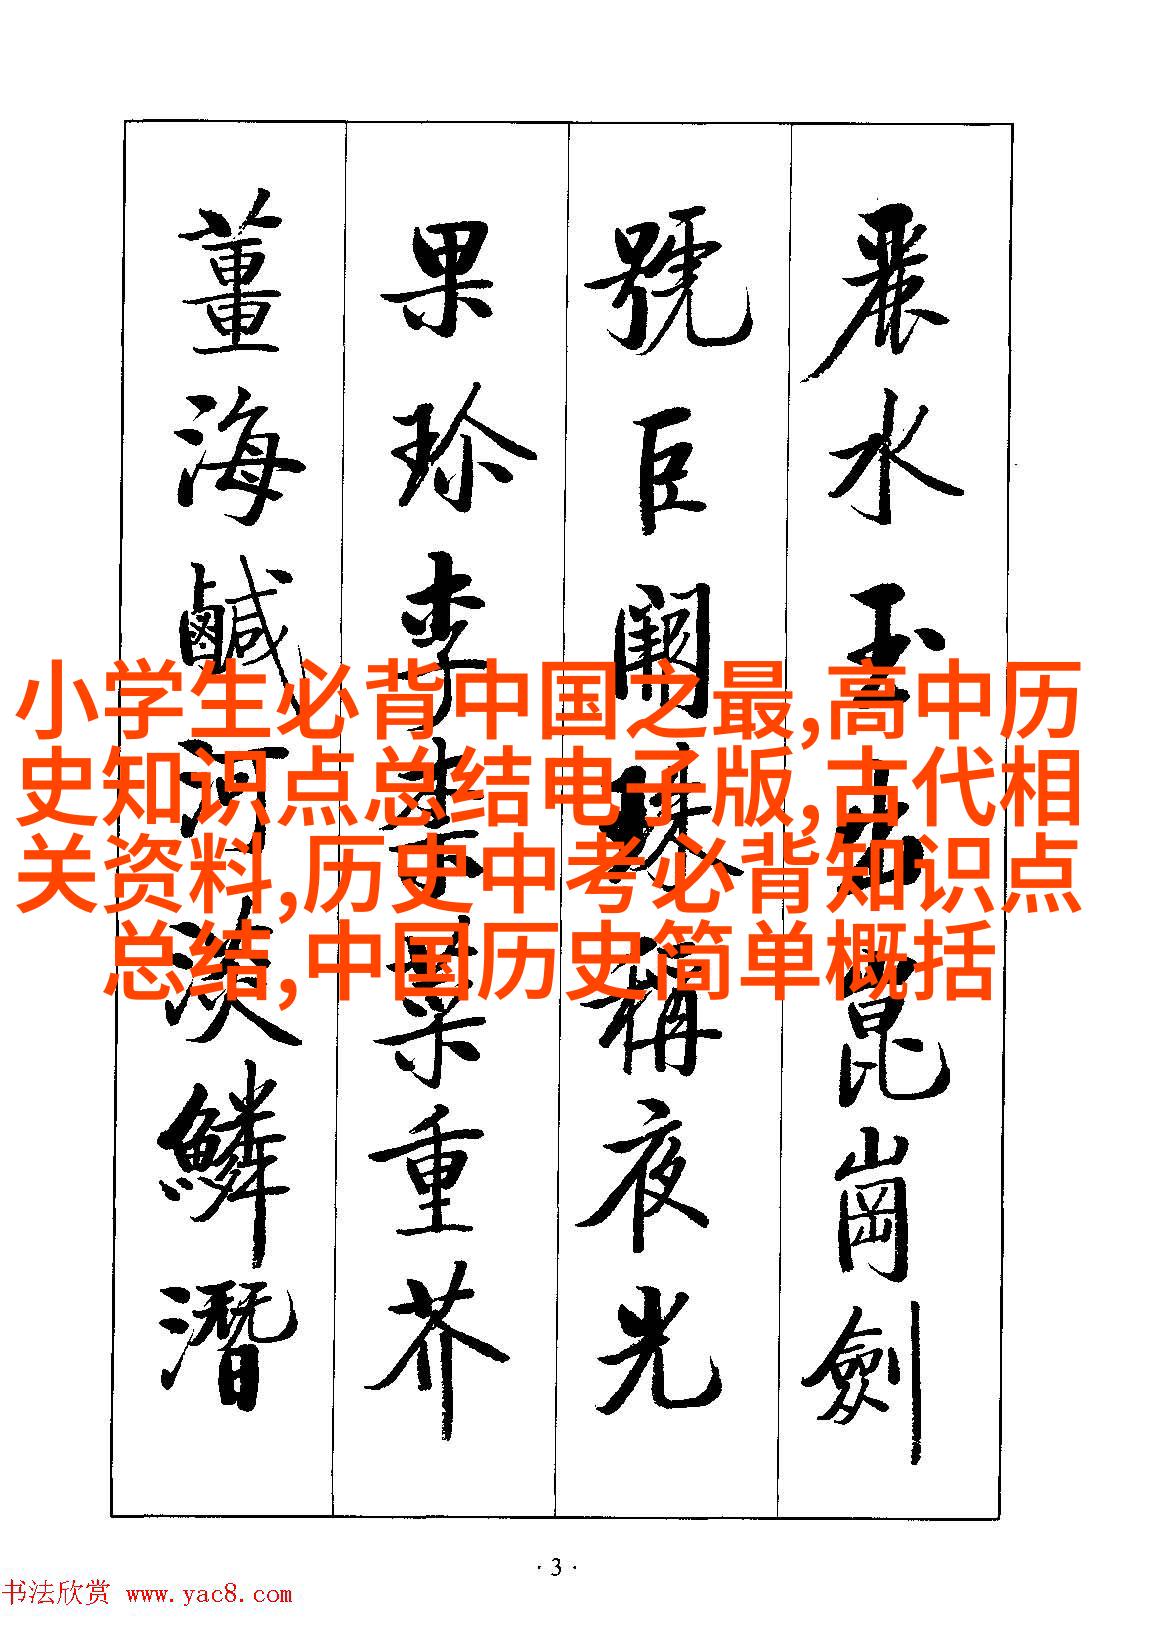 麗水玉出崑崗劍
號巨闕珠稱夜光
果珍李柰菜重芥
薑海鹹河淡鱗潛
小学生必背中国之最,高中历
史知识点总结电子版,古代相
关资料,历史中考必背知识点
总结,中国历史简单概括
·3·
书法欣赏 www.yac8.com